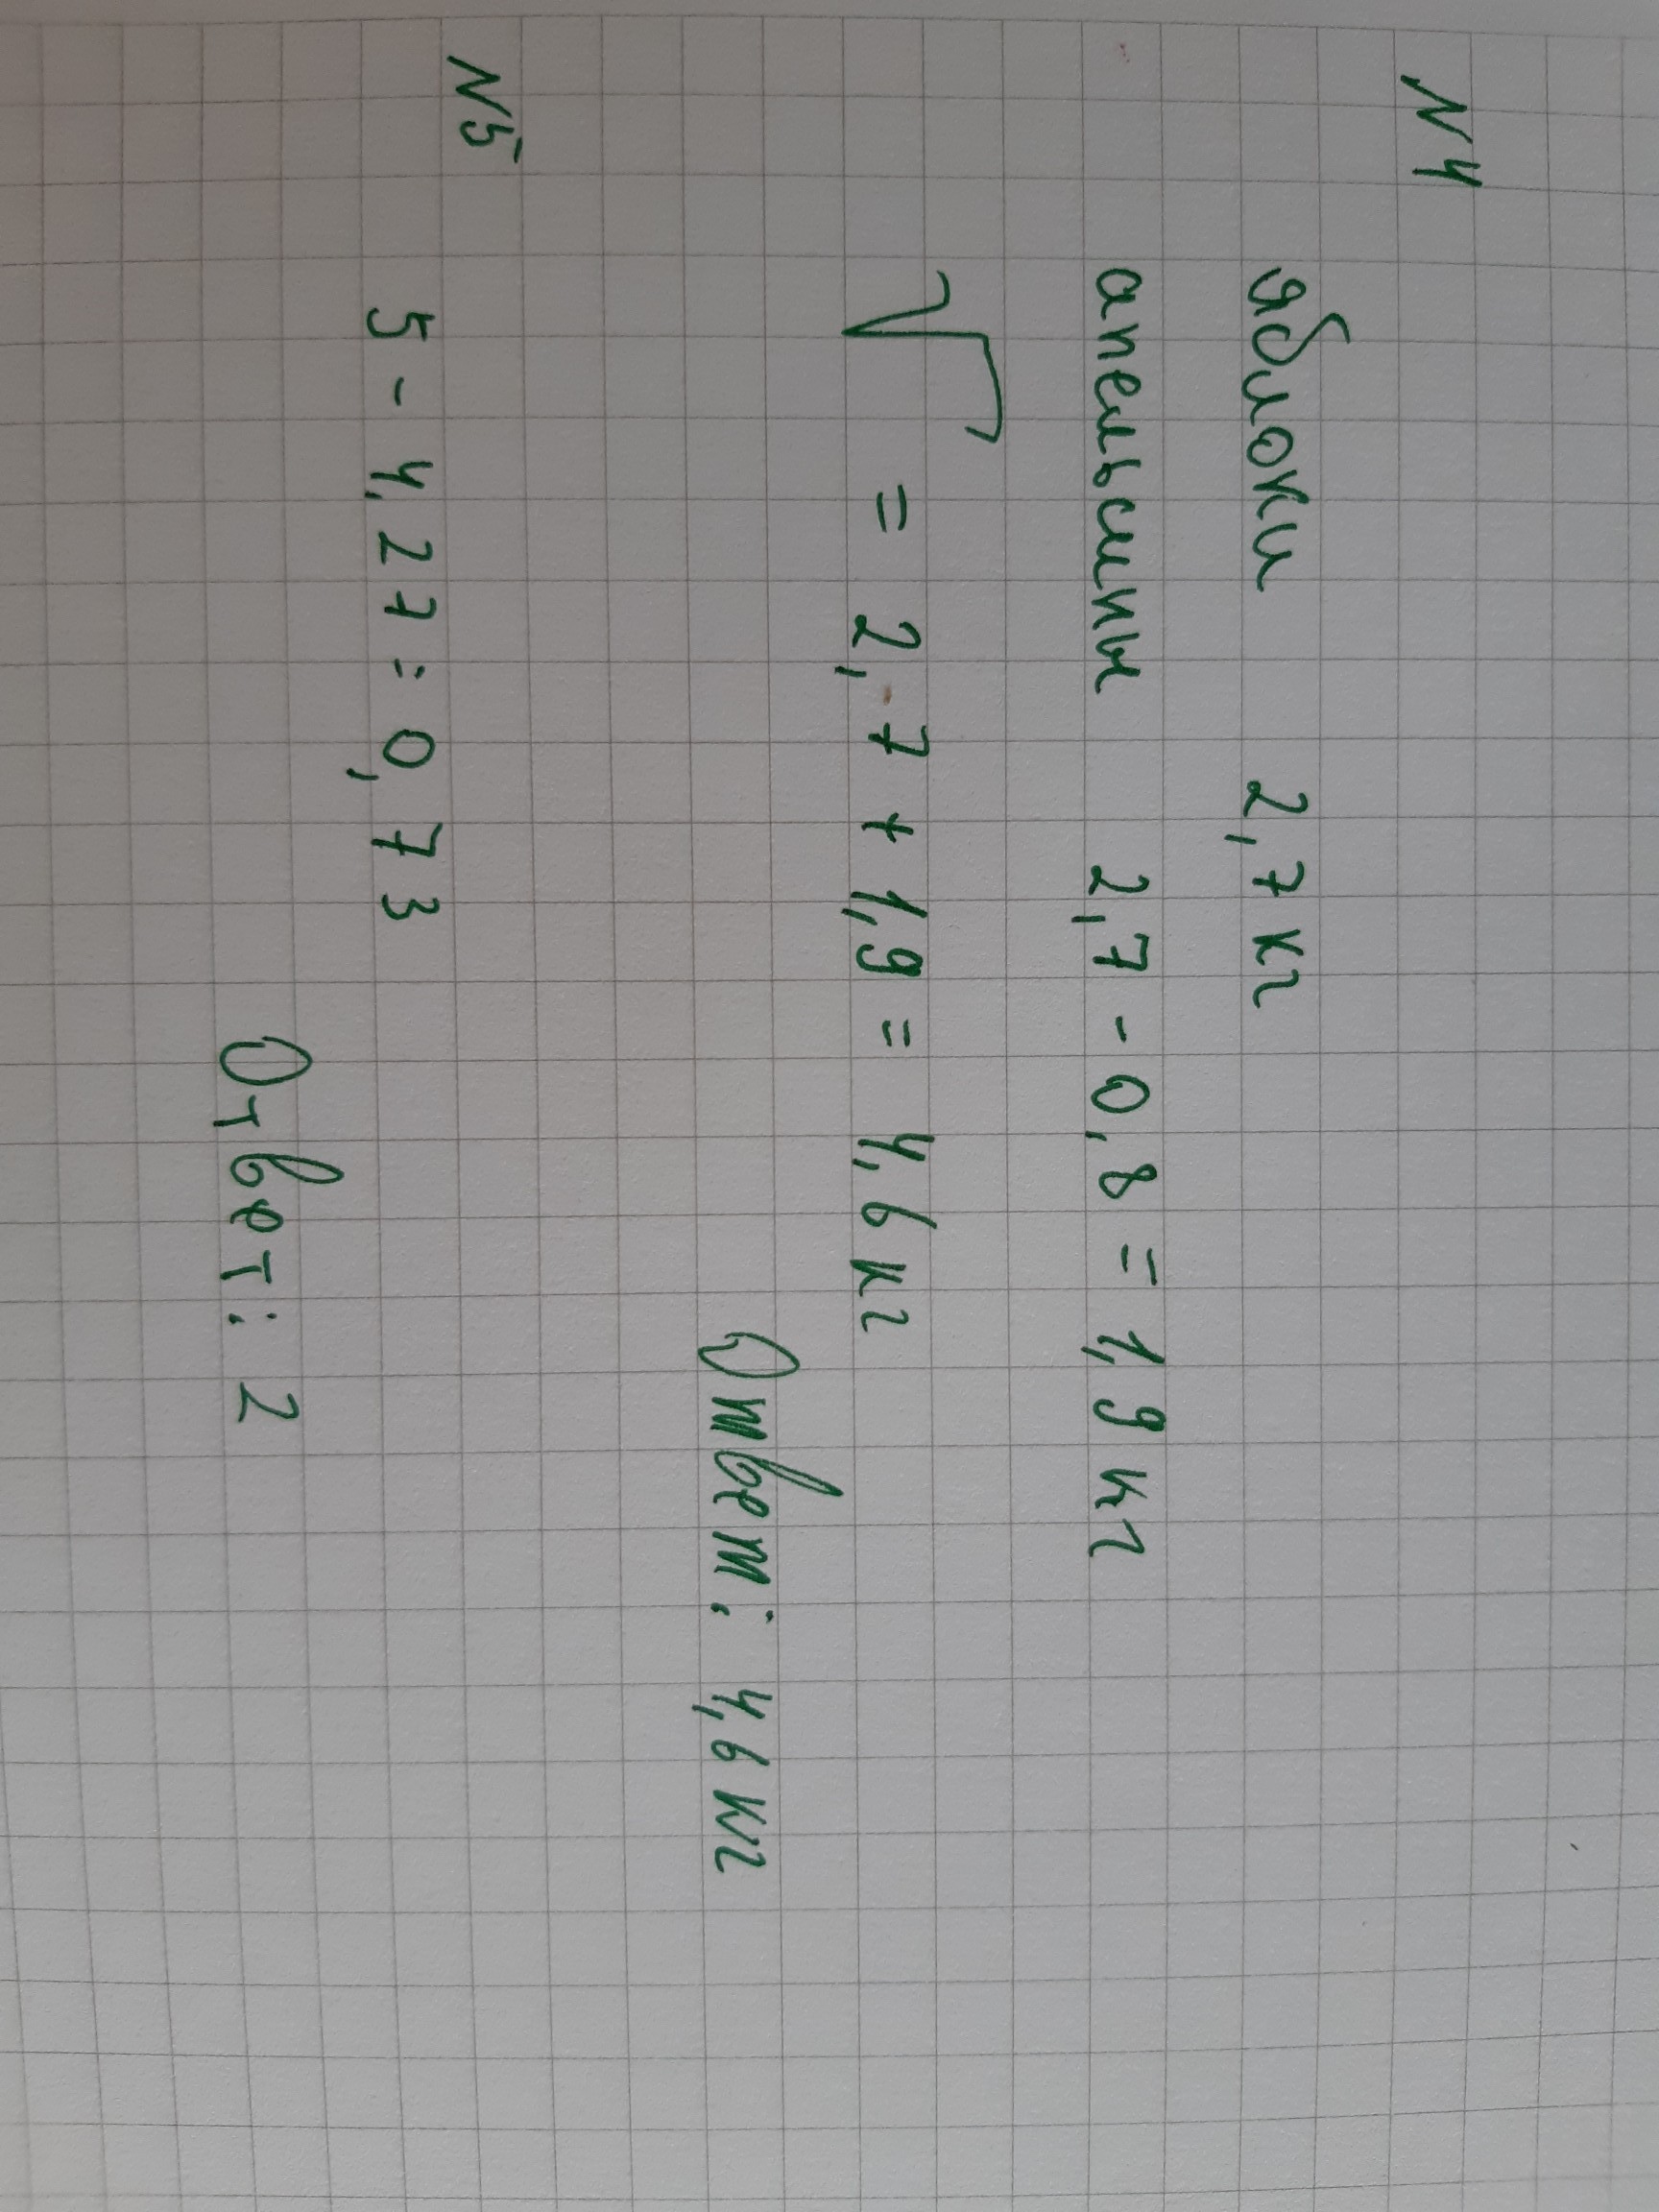 N4
яблоки 2,7 кг
апельсины 2,7 - 0,8 = 1,9 кг
√ = 2,7 + 1,9 = 4,6 кг
Ответ: 4,6 кг
N5
5 - 4,27 = 0,73
Ответ: 2